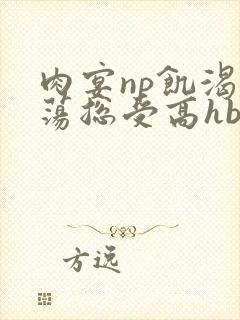 肉宴np飢渴
蕩總受高hb
方远